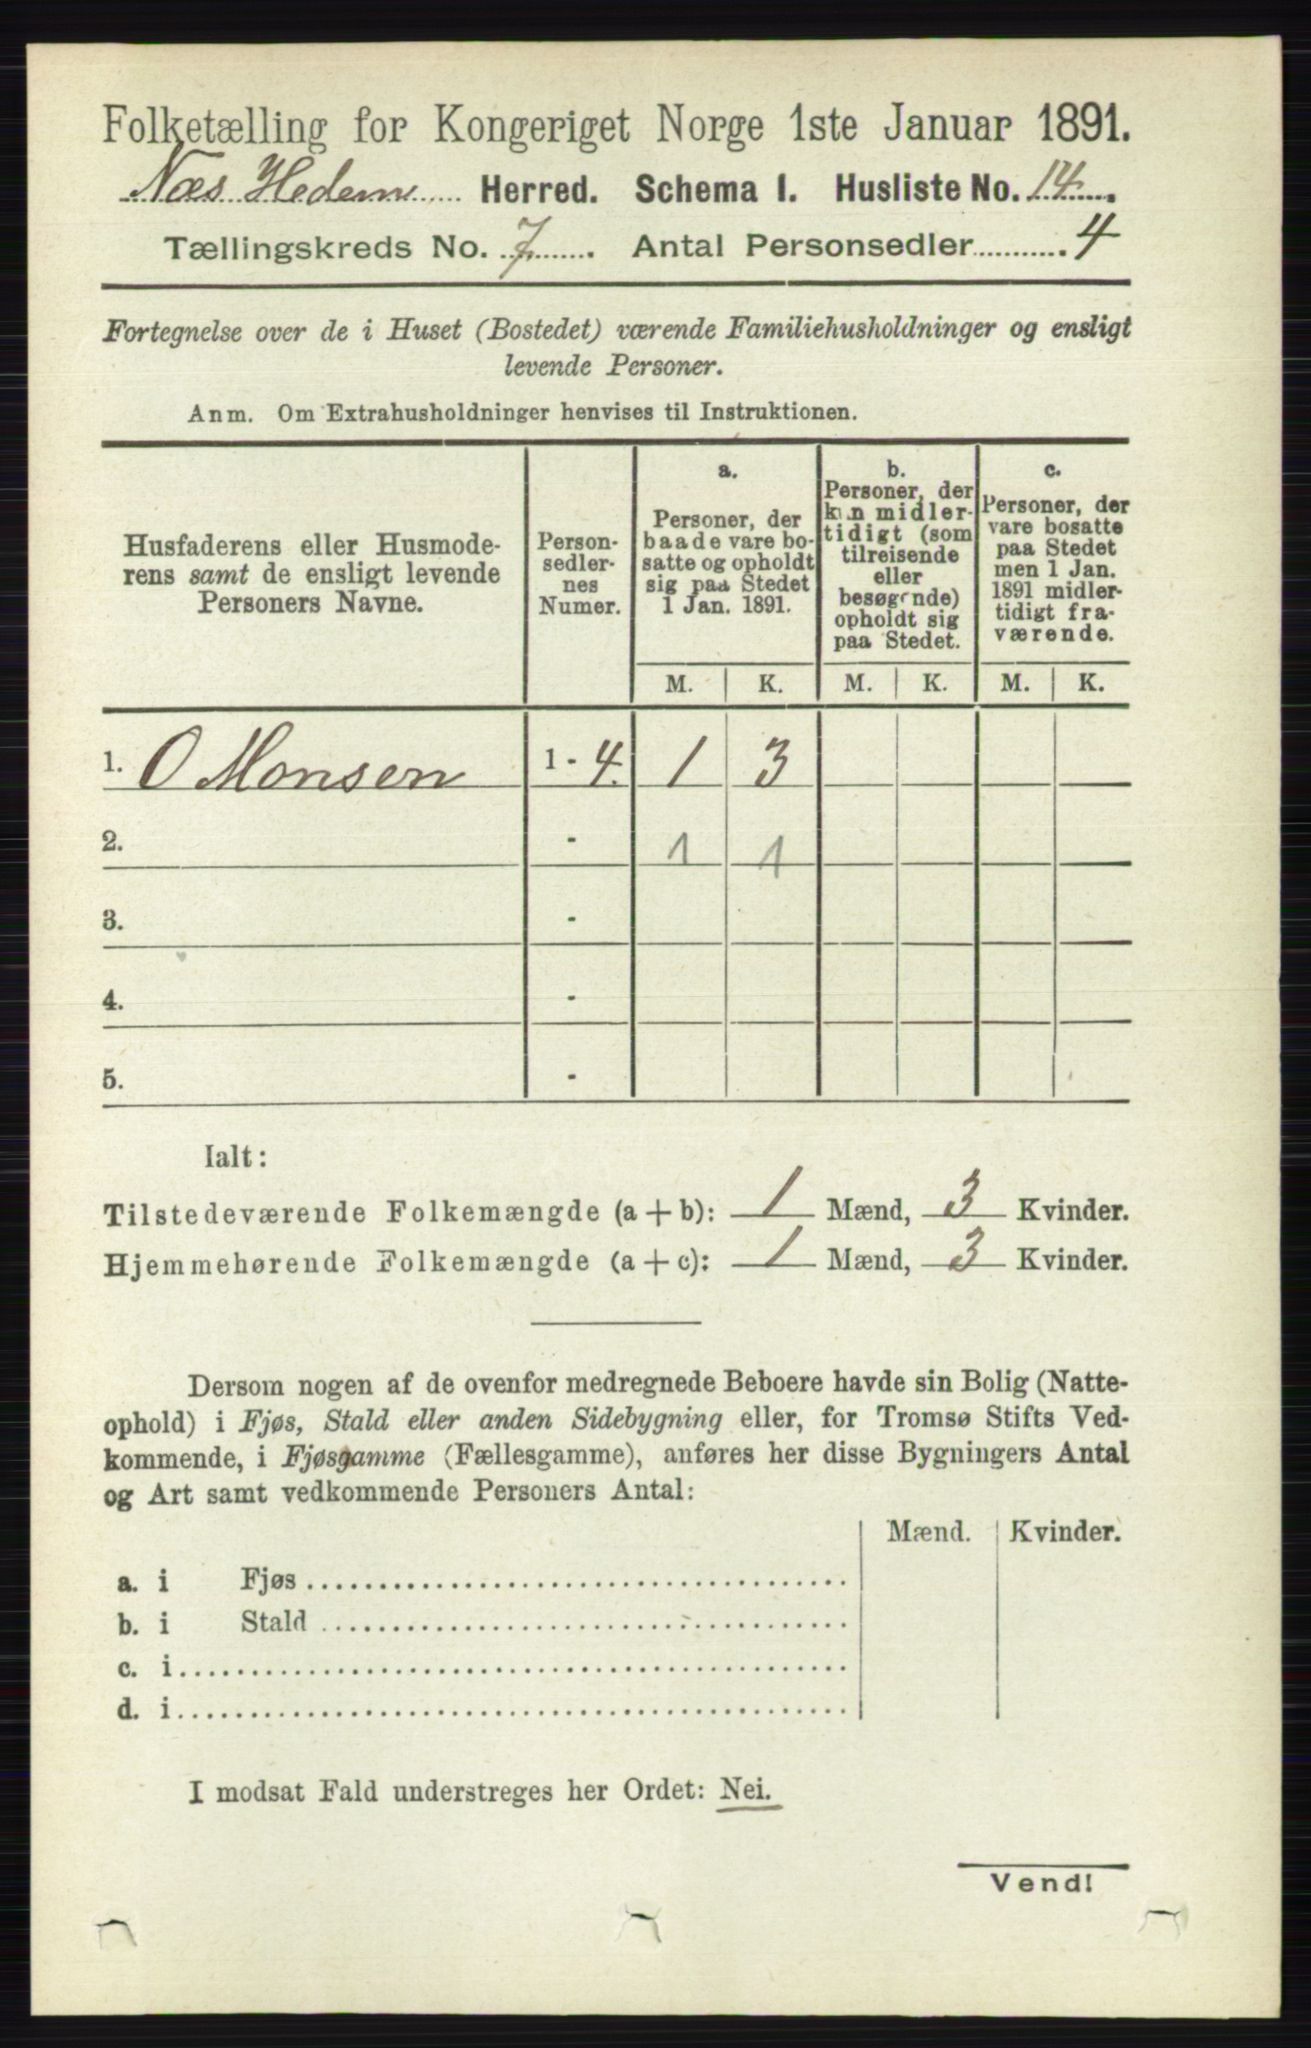 Folketælling for Kongeriget Norge 1ste Januar 1891.
Næs Hedem Herred. Schema I. Husliste No. 14.
Tællingskreds No. 7. Antal Personsedler 4
Fortegnelse over de i Huset (Bostedet) værende Familiehusholdninger og ensligt
levende Personer.
Anm. Om Extrahusholdninger henvises til Instruktionen.
Husfaderens eller Husmode-
rens samt de ensligt levende
Personers Navne.
Person-
sedler-
nes
Numer.
a.
Personer, der
baade vare bo-
satte og opholdt
sig paa Stedet
1 Jan. 1891.
b.
Personer, der
kun midler-
tidigt (som
tilreisende
eller
besøgende)
opholdt sig
paa Stedet.
c.
Personer, der
vare bosatte
paa Stedet
men 1 Jan.
1891 midler-
tidigt fra-
værende.
M. K. M. K. M. K.
1. O Monsen 1 - 4. 1 3
2. - 1 1
3. -
4. -
5. -
Ialt:
Tilstedeværende Folkemængde (a + b): 1 Mænd, 3 Kvinder.
Hjemmehørende Folkemængde (a + c): 1 Mænd, 3 Kvinder.
Dersom nogen af de ovenfor medregnede Beboere havde sin Bolig (Natte-
ophold) i Fjøs, Stald eller anden Sidebygning eller, for Tromsø Stifts Ved-
kommende, i Fjøsgamme (Fællesgamme), anføres her disse Bygningers Antal
og Art samt vedkommende Personers Antal:
Mænd. Kvinder.
a. i Fjøs
b. i Stald
c. i
d. i
I modsat Fald understreges her Ordet: Nei.
Vend!